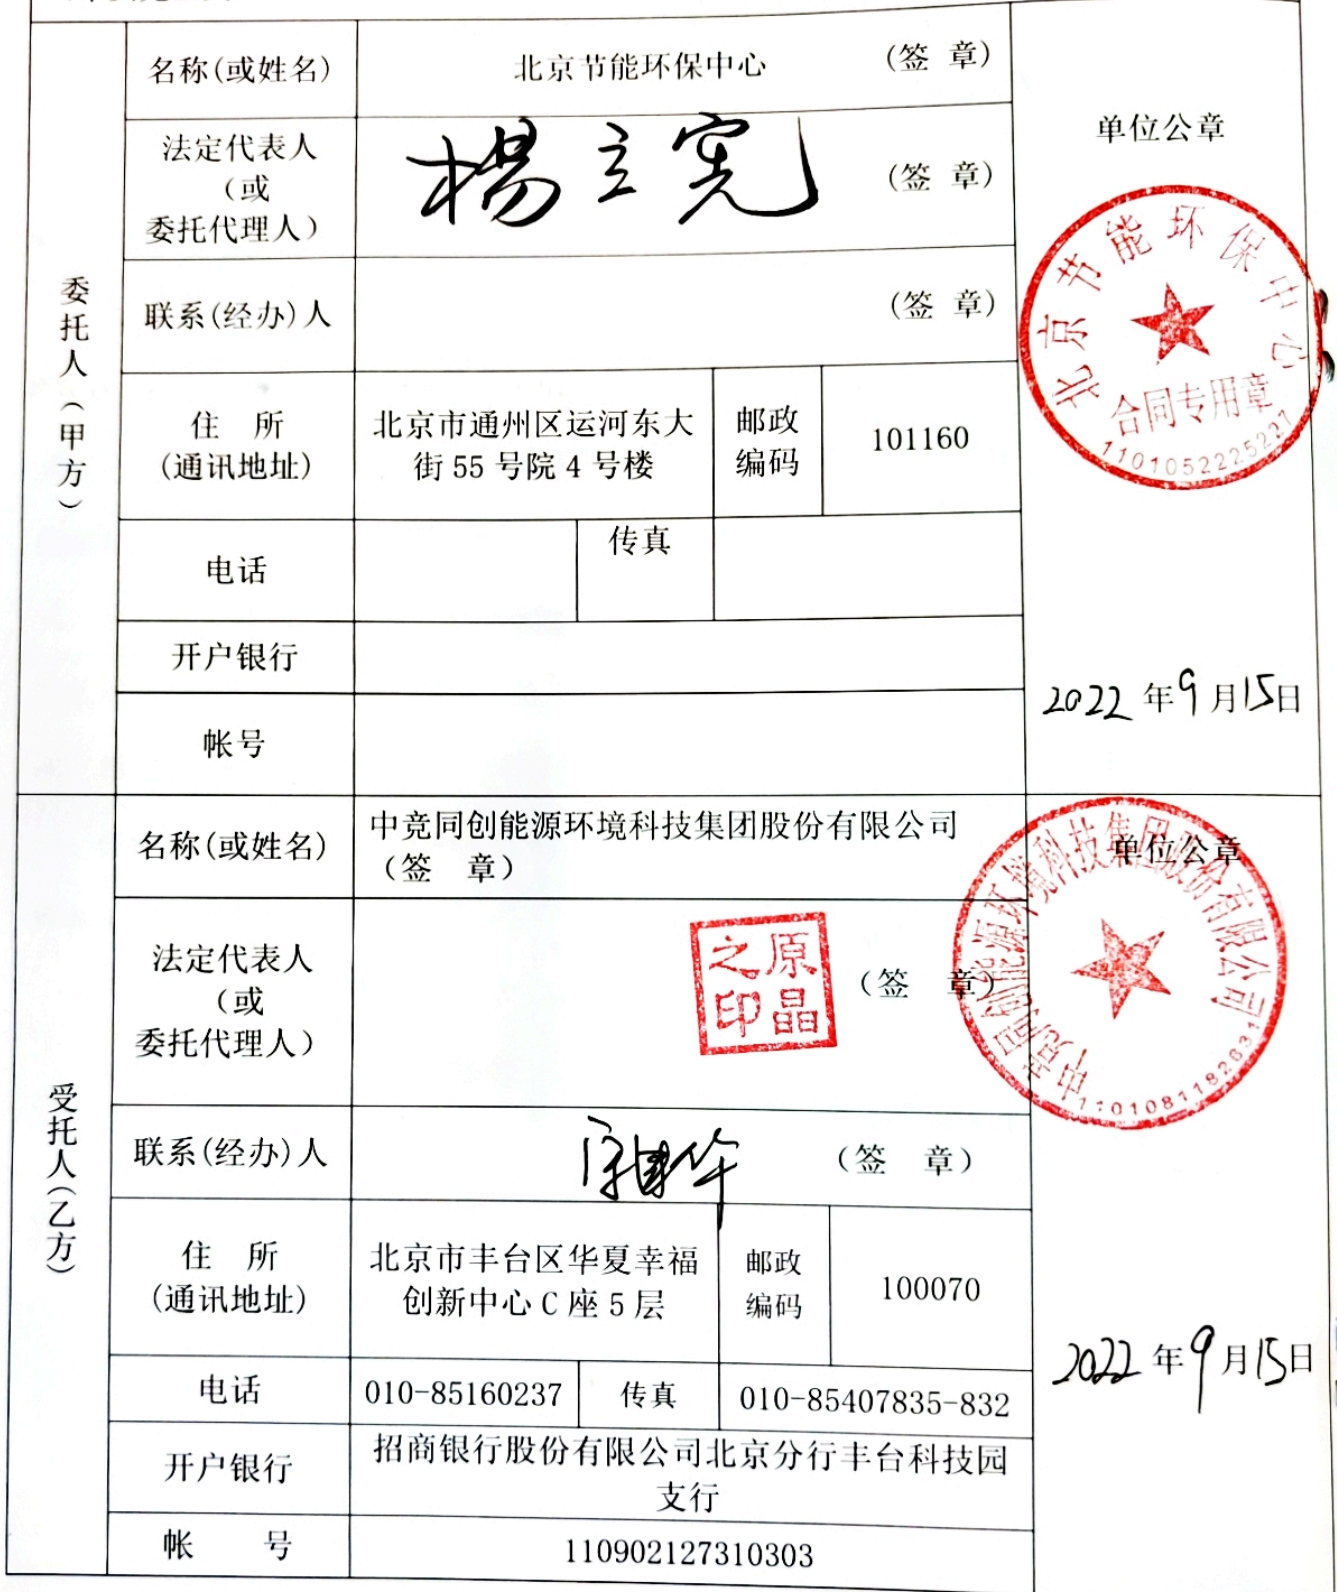 委托人（甲方）
名称(或姓名)
北京节能环保中心
(签 章)
法定代表人
（或
委托代理人）
楊立宪
(签 章)
联系(经办)人
(签 章)
住 所
(通讯地址)
北京市通州区运河东大
街 55 号院 4 号楼
邮政
编码
101160
电话
传真
开户银行
帐号
单位公章
北京节能环保中心
合同专用章
1101052225227
2022 年 9 月 15 日
受托人（乙方）
名称(或姓名)
中竞同创能源环境科技集团股份有限公司
（签 章）
法定代表人
（或
委托代理人）
原晶
之印
（签 章）
联系(经办)人
（签 章）
住 所
(通讯地址)
北京市丰台区华夏幸福
创新中心 C 座 5 层
邮政
编码
100070
电话
010-85160237
传真
010-85407835-832
开户银行
招商银行股份有限公司北京分行丰台科技园
支行
帐 号
110902127310303
单位公章
中竞同创能源环境科技集团股份有限公司
2022 年 9 月 15 日